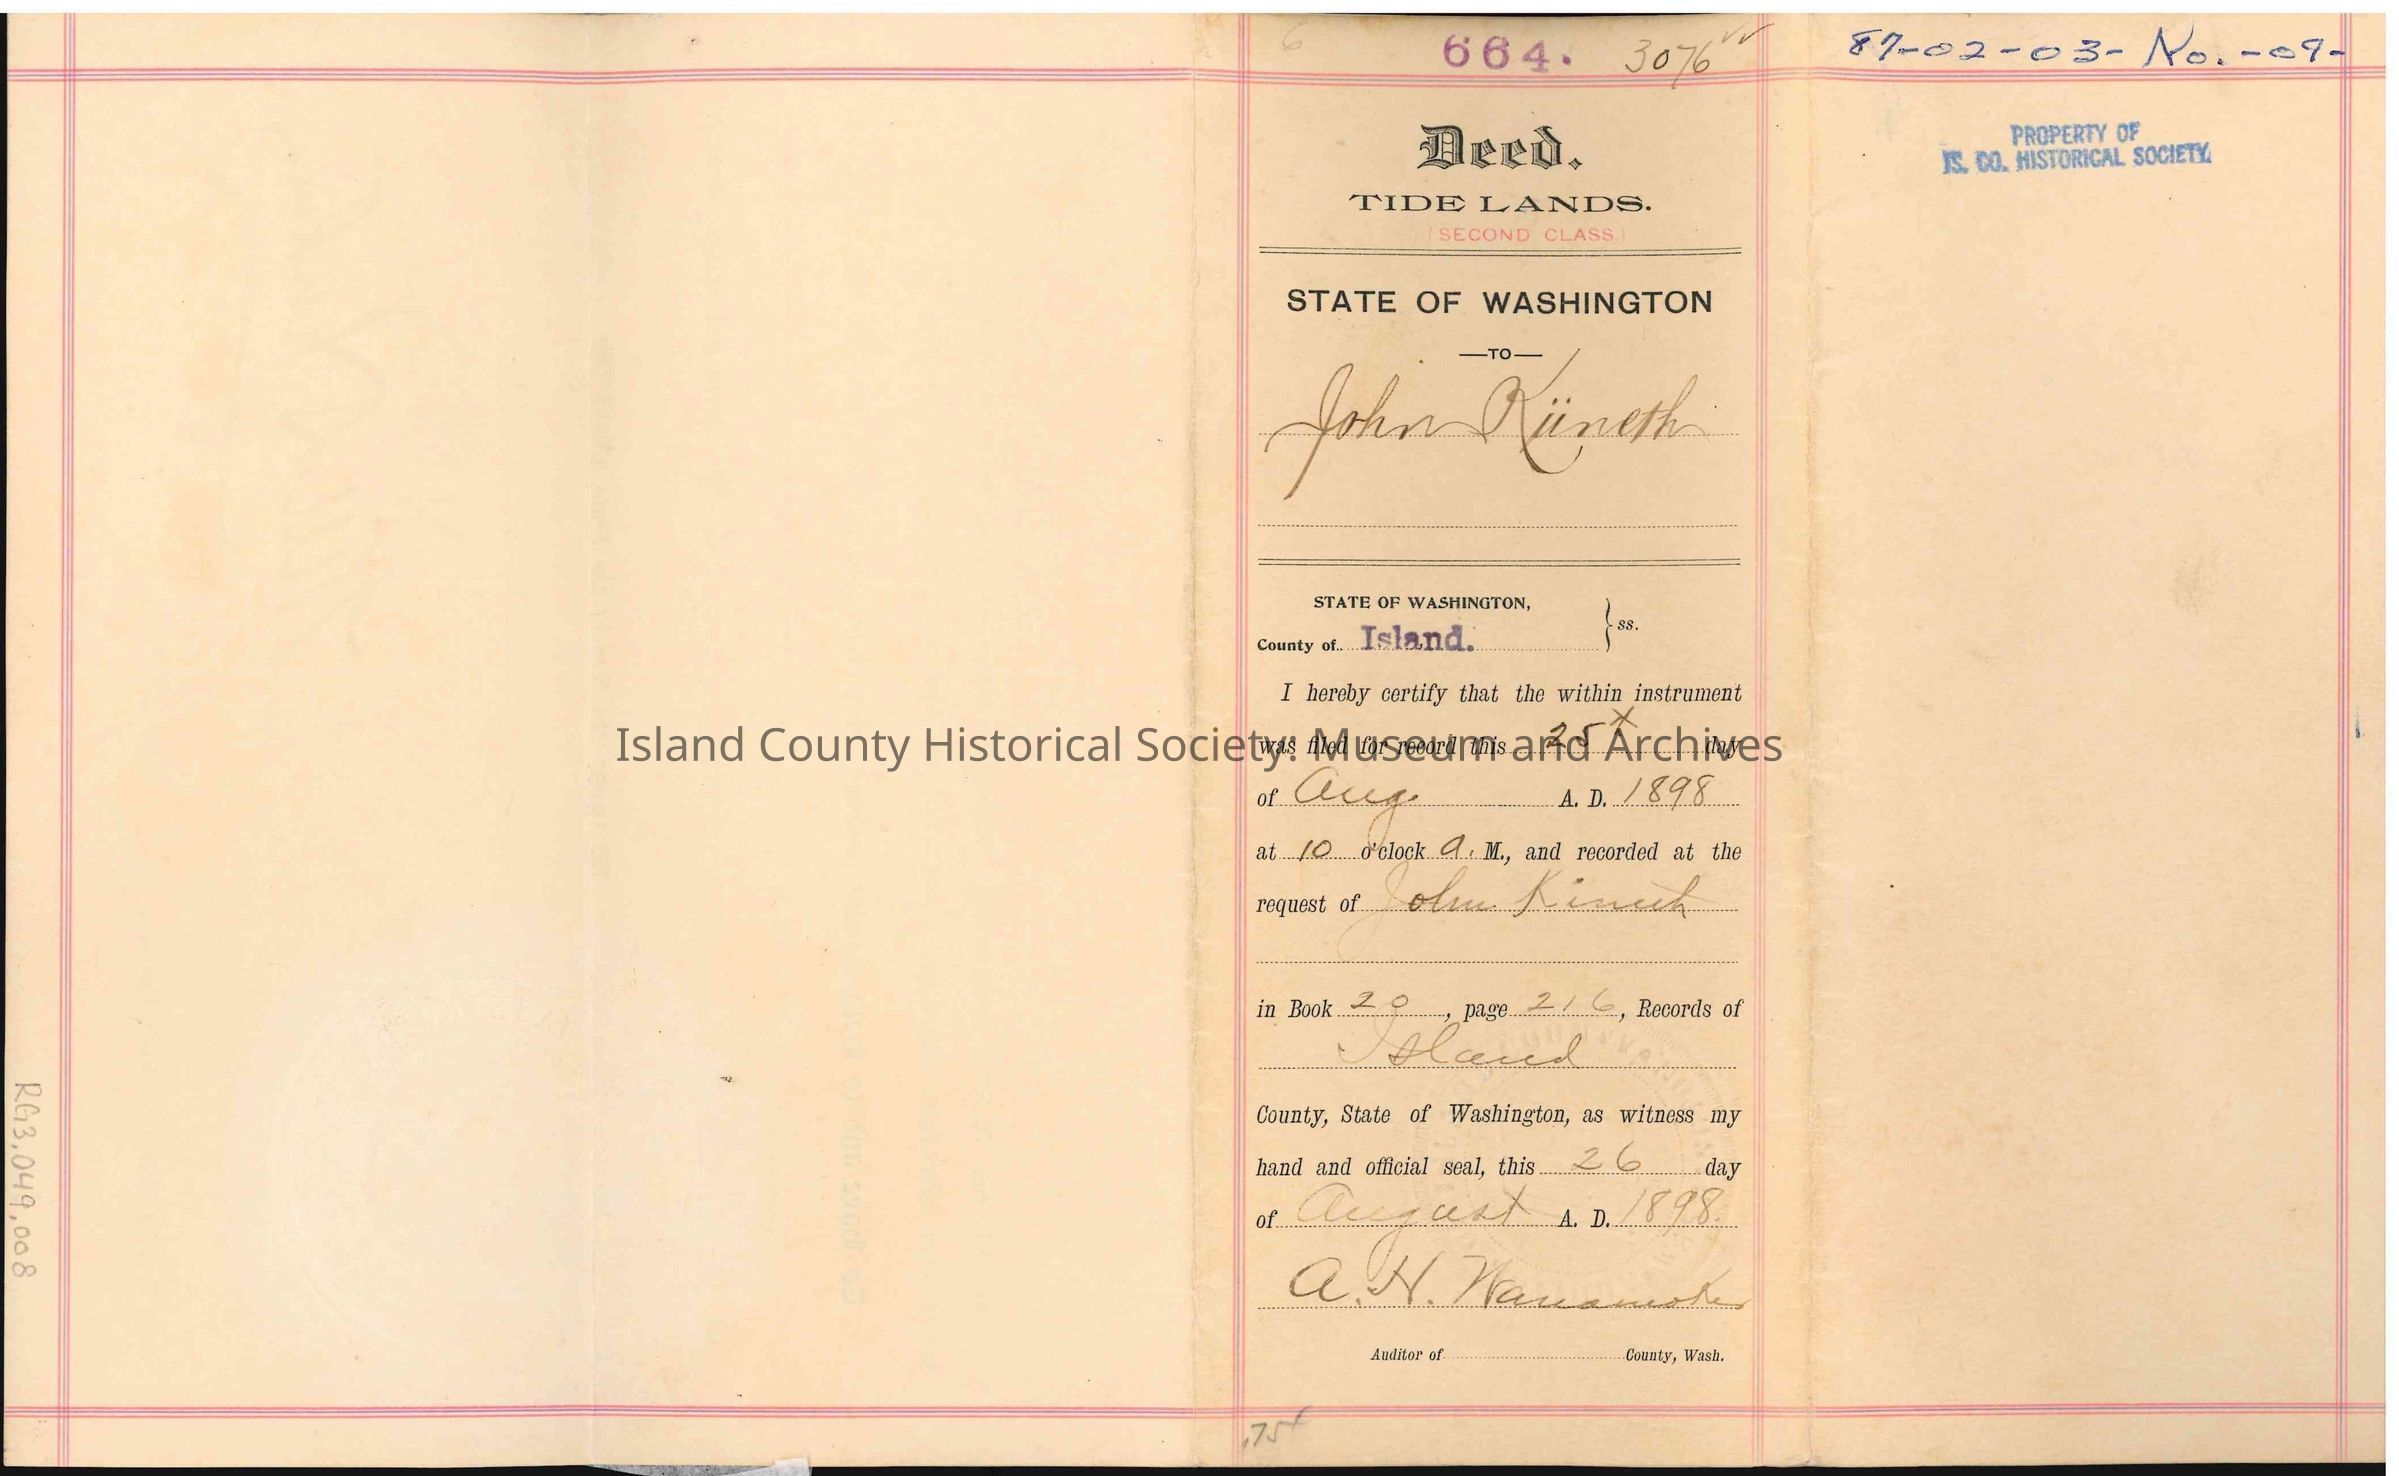 664. 3076
87-02-03-No.-09-
PROPERTY OF
IS. CO. HISTORICAL SOCIETY.
Deed.
TIDE LANDS.
(SECOND CLASS.)
STATE OF WASHINGTON
—TO—
John Küneth
STATE OF WASHINGTON,
County of Island. } ss.
I hereby certify that the within instrument
was filed for record this 25 day
of Aug. A. D. 1898
at 10 o'clock a. M., and recorded at the
request of John Kineth
in Book 20, page 216, Records of
Island
County, State of Washington, as witness my
hand and official seal, this 26 day
of August A. D. 1898.
A. H. Wanamoker
Auditor of County, Wash.
.75
RG3.049.008
Island County Historical Society: Museum and Archives